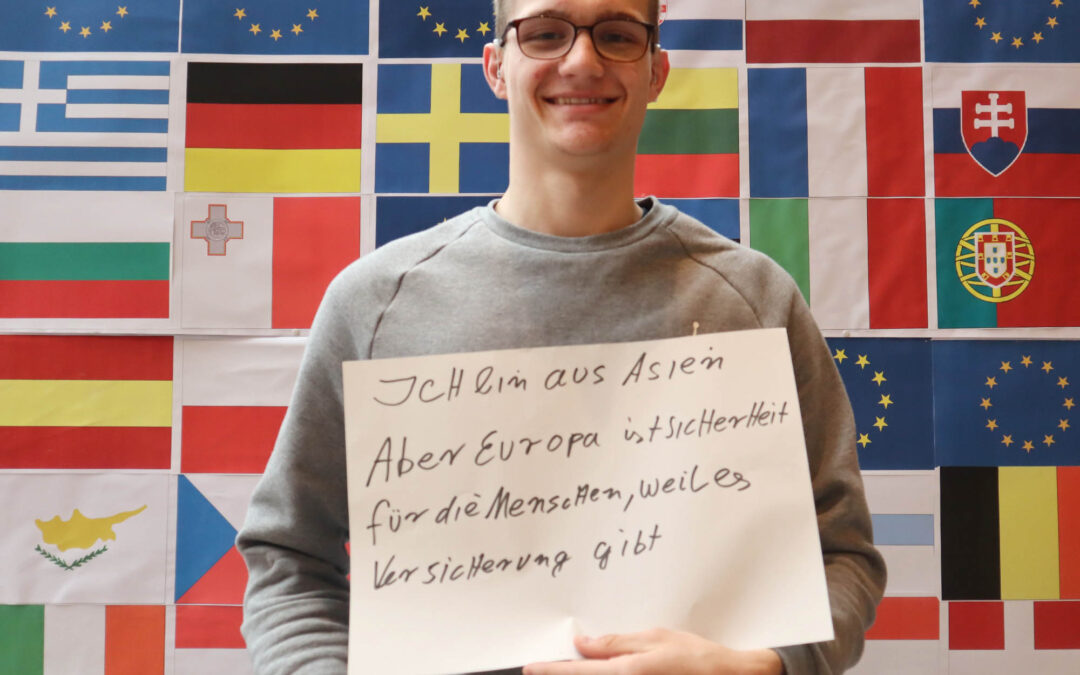 ICH bin aus Asien
Aber Europa ist sicherheit
für die Menschen, weil es
Versicherung gibt